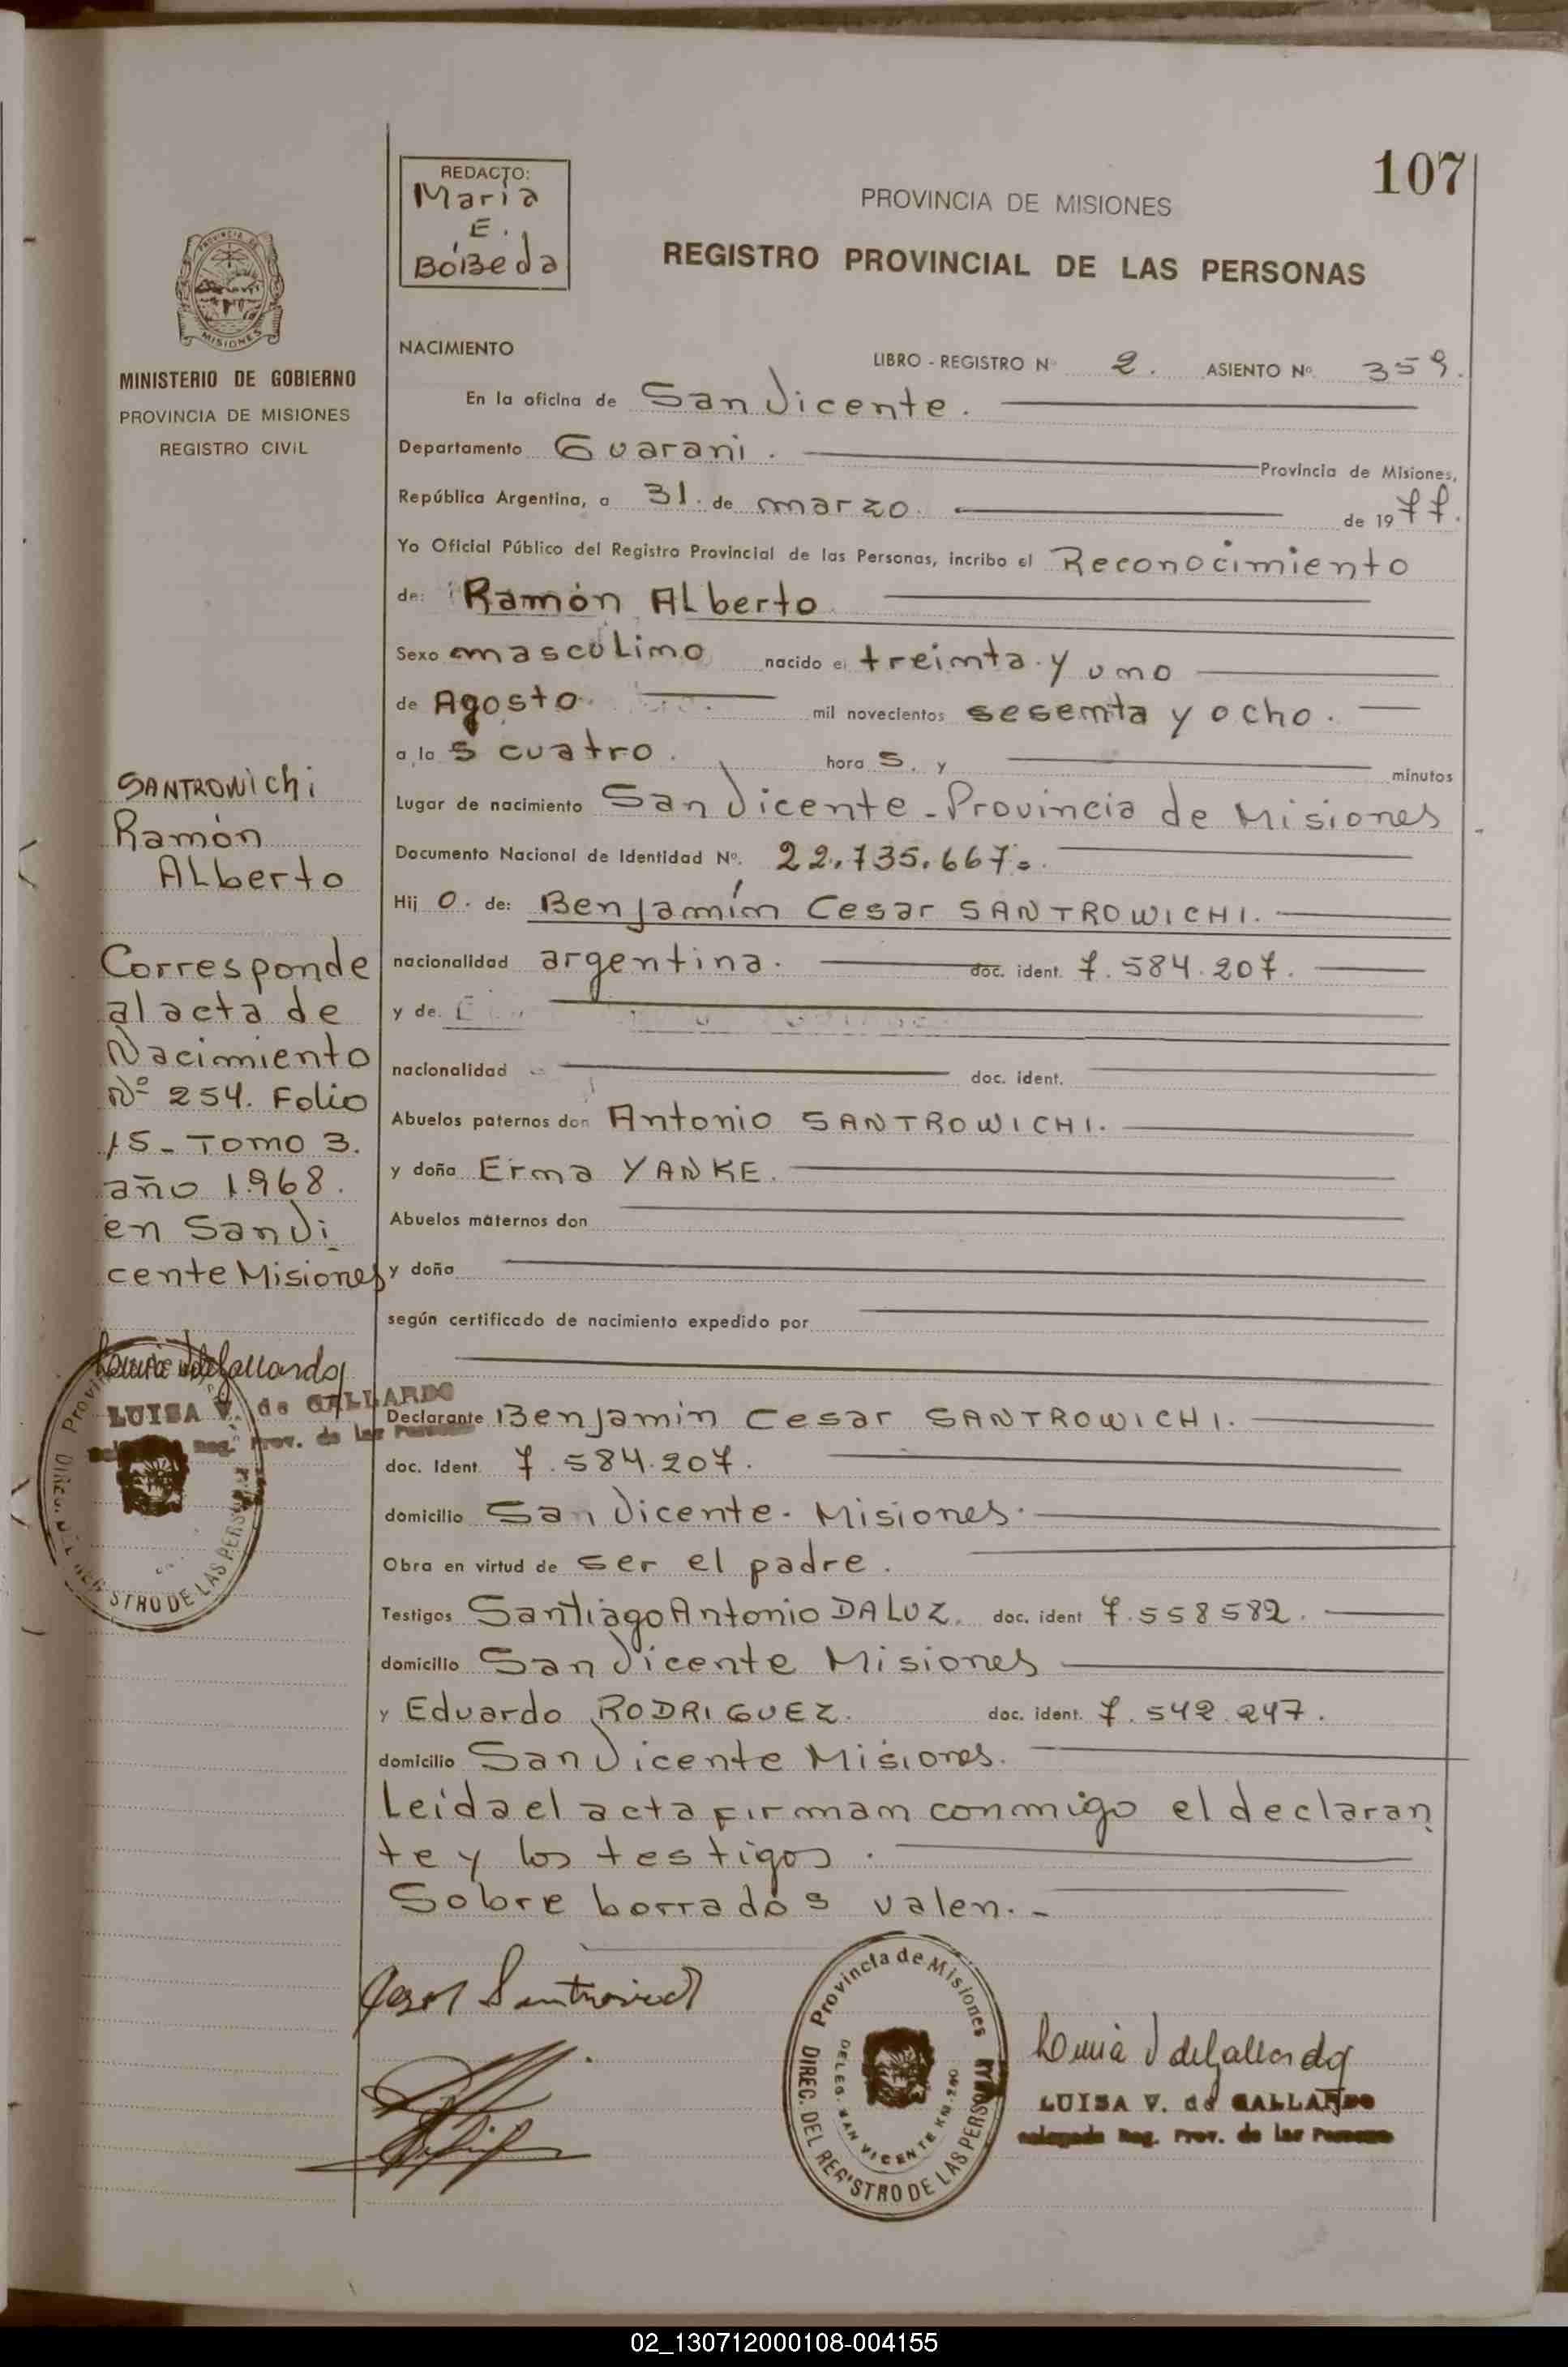 107
REDACTO:
Maria
E.
Bóbeda
PROVINCIA DE MISIONES
REGISTRO PROVINCIAL DE LAS PERSONAS
PROVINCIA DE
MISIONES
MINISTERIO DE GOBIERNO
PROVINCIA DE MISIONES
REGISTRO CIVIL
NACIMIENTO
LIBRO - REGISTRO Nº 2. ASIENTO Nº 359.
En la oficina de San Vicente.
Departamento Guarani. Provincia de Misiones,
República Argentina, a 31. de marzo. de 1977.
Yo Oficial Público del Registro Provincial de las Personas, incribo el Reconocimiento
de: Ramón Alberto
Sexo masculino nacido el treinta y uno
de Agosto. mil novecientos sesenta y ocho.
a la s cuatro. hora s. y minutos
Lugar de nacimiento San Vicente - Provincia de Misiones
Documento Nacional de Identidad Nº. 22.735.667.
Hij o. de: Benjamín Cesar SANTROWICHI.
nacionalidad argentina. doc. ident. 7.584.207.
y de.
nacionalidad doc. ident.
Abuelos paternos don Antonio SANTROWICHI.
y doña Erma YANKE.
Abuelos maternos don
y doña
según certificado de nacimiento expedido por
Declarante Benjamin Cesar SANTROWICHI.
doc. Ident. 7.584.207.
domicilio San Vicente. Misiones.
Obra en virtud de ser el padre.
Testigos Santiago Antonio DALUZ. doc. ident 7.558582.
domicilio San Vicente Misiones
y Eduardo RODRIGUEZ. doc. ident. 7.542.247.
domicilio San Vicente Misiones.
Leída el acta firman conmigo el declaran
te y los testigos.
Sobre borrados valen.-
SANTROWichi
Ramón
Alberto
Corresponde
al acta de
Nacimiento
Nº 254. Folio
15 - Tomo 3.
año 1.968.
en San Vi
cente Misiones
LUISA V. de GALLARDO
Reg. Prov. de las Personas
STRO DE LAS PERSO
Cesar Santrowich
Provincia de Misiones
DIREC. DEL REGISTRO DE LAS PERSONAS
DELEG. SAN VICENTE KM. 280
Luisa V de Gallardo
LUISA V. de GALLARDO
Delegada Reg. Prov. de las Personas
02_130712000108-004155